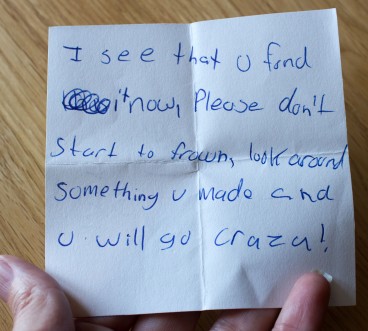 I see that u find
it now, Please don't
start to frown, look around
something u made and
u will go craza!